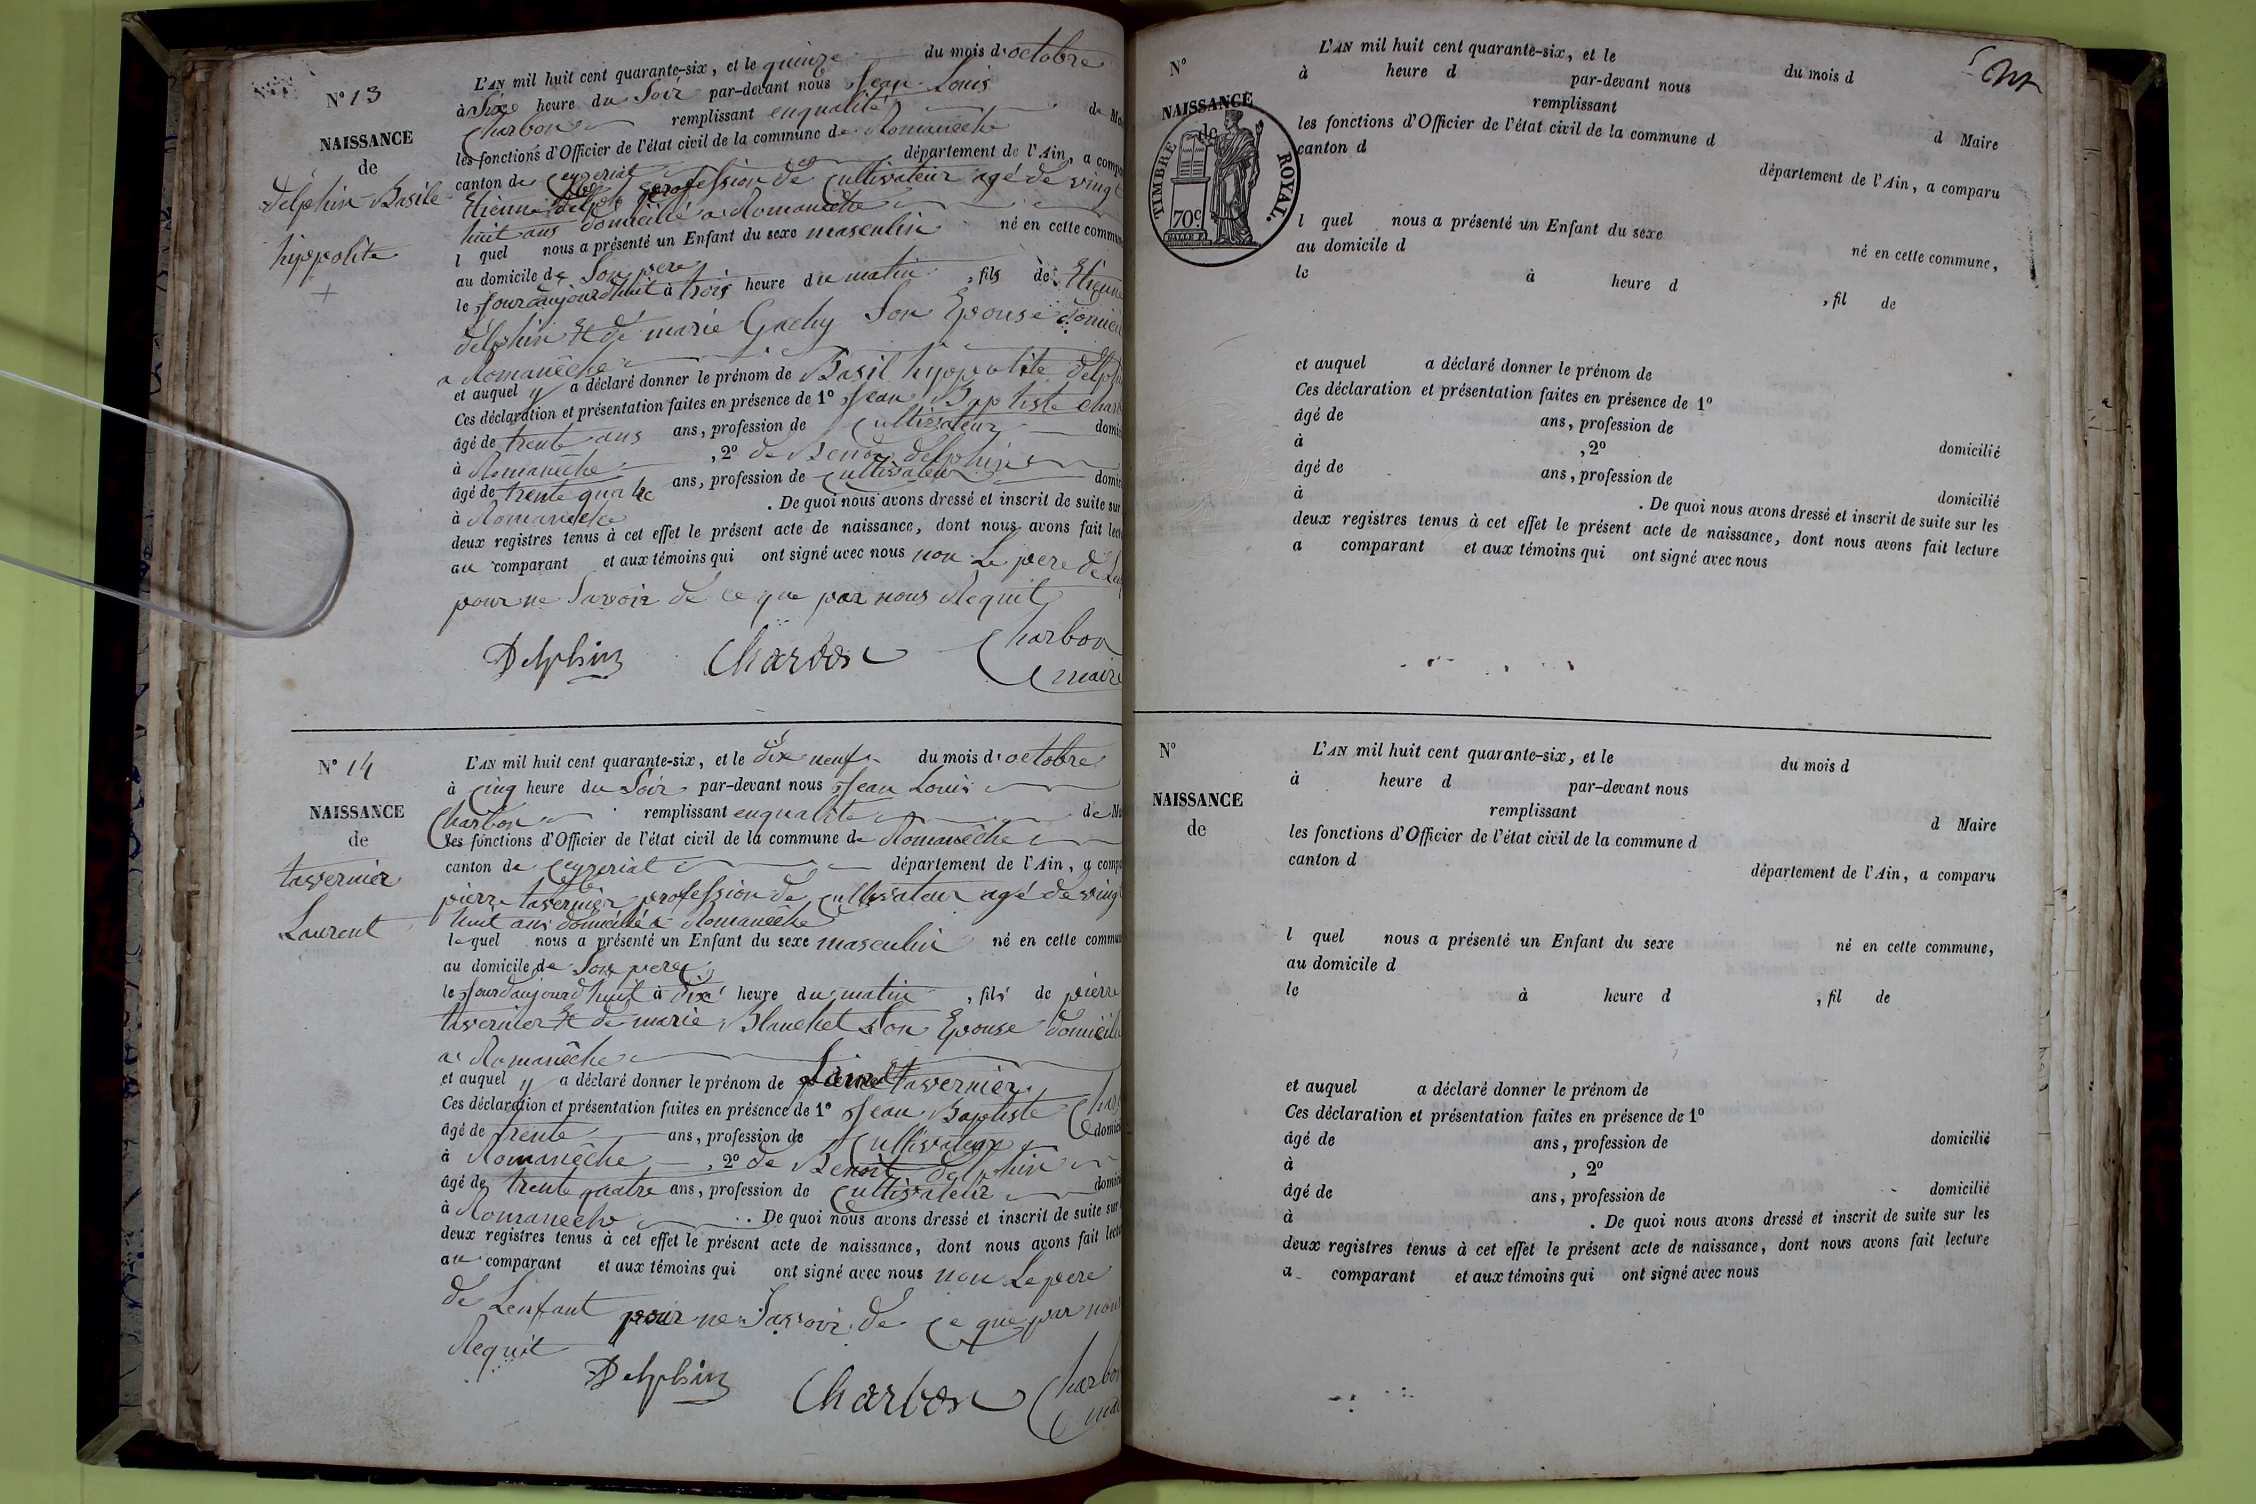 N° 13
NAISSANCE
de
delphin Basile
hyppolite
L'AN mil huit cent quarante-six, et le quinze du mois d'octobre
à Six heure du Soir par-devant nous Jean Louis
Charbon remplissant enqualité de Ma
les fonctions d'Officier de l'état civil de la commune de Romanèche
canton de Ceyzeriat département de l'Ain, a compa
Etienne delphin profession de Cultivateur agé de vingt
huit ans domicilié a Romanèche
l quel nous a présenté un Enfant du sexe masculin né en cette commun
au domicile de Son pere
le Jour daujourdhuit à trois heure du matin, fils de Etienne
delphin Et de marie Gachy Son Epouse domicil
a Romanèche
et auquel y a déclaré donner le prénom de Basil hyppolite delphi
Ces déclaration et présentation faites en présence de 1° Jean Baptiste Charb
âgé de trente ans ans, profession de Cultivateur domici
à Romanèche, 2° de Benoit delphin
âgé de trente quatre ans, profession de Cultivateur domici
à Romanèche. De quoi nous avons dressé et inscrit de suite sur
deux registres tenus à cet effet le présent acte de naissance, dont nous avons fait lect
au comparant et aux témoins qui ont signé avec nous non Le pere de Len
pour ne Savoir de ce que par nous Requit
Delphin Charbon Charbon
maire
N° 14
NAISSANCE
de
tavernier
Laurent
L'AN mil huit cent quarante-six, et le dix neuf du mois d'octobre
à Cinq heure du Soir par-devant nous Jean Louis
Charbon remplissant enqualité de Ma
les fonctions d'Officier de l'état civil de la commune de Romanèche
canton de Ceyzeriat département de l'Ain, a compa
pierre tavernier profession de Cultivateur agé de vingt
huit ans domicilié a Romanèche
lequel nous a présenté un Enfant du sexe masculin né en cette commun
au domicile de Son pere
le Jour daujourdhuit à dix heure du matin, fils de pierre
tavernier Et de marie Blanchet Son Epouse domicili
a Romanèche
et auquel y a déclaré donner le prénom de tavernier
Ces déclaration et présentation faites en présence de 1° Jean Baptiste Charb
âgé de trente ans, profession de Cultivateur domici
à Romanèche, 2° de Benoit delphin
âgé de trente quatre ans, profession de Cultivateur domici
à Romanèche. De quoi nous avons dressé et inscrit de suite sur
deux registres tenus à cet effet le présent acte de naissance, dont nous avons fait lectu
au comparant et aux témoins qui ont signé avec nous non Le pere
de Lenfant pour ne Savoir de ce que par nous
Requit
Delphin Charbon Charbon
mai
N°
NAISSANCE
de
TIMBRE ROYAL.
70c.
L'AN mil huit cent quarante-six, et le du mois d
à heure d par-devant nous
remplissant d Maire
les fonctions d'Officier de l'état civil de la commune d
canton d département de l'Ain, a comparu
l quel nous a présenté un Enfant du sexe né en cette commune,
au domicile d
le à heure d, fil de
et auquel a déclaré donner le prénom de
Ces déclaration et présentation faites en présence de 1°
âgé de ans, profession de domicilié
à, 2°
âgé de ans, profession de domicilié
à. De quoi nous avons dressé et inscrit de suite sur les
deux registres tenus à cet effet le présent acte de naissance, dont nous avons fait lecture
a comparant et aux témoins qui ont signé avec nous
N°
NAISSANCE
de
L'AN mil huit cent quarante-six, et le du mois d
à heure d par-devant nous
remplissant d Maire
les fonctions d'Officier de l'état civil de la commune d
canton d département de l'Ain, a comparu
l quel nous a présenté un Enfant du sexe né en cette commune,
au domicile d
le à heure d, fil de
et auquel a déclaré donner le prénom de
Ces déclaration et présentation faites en présence de 1°
âgé de ans, profession de domicilié
à, 2°
âgé de ans, profession de domicilié
à. De quoi nous avons dressé et inscrit de suite sur les
deux registres tenus à cet effet le présent acte de naissance, dont nous avons fait lecture
a comparant et aux témoins qui ont signé avec nous